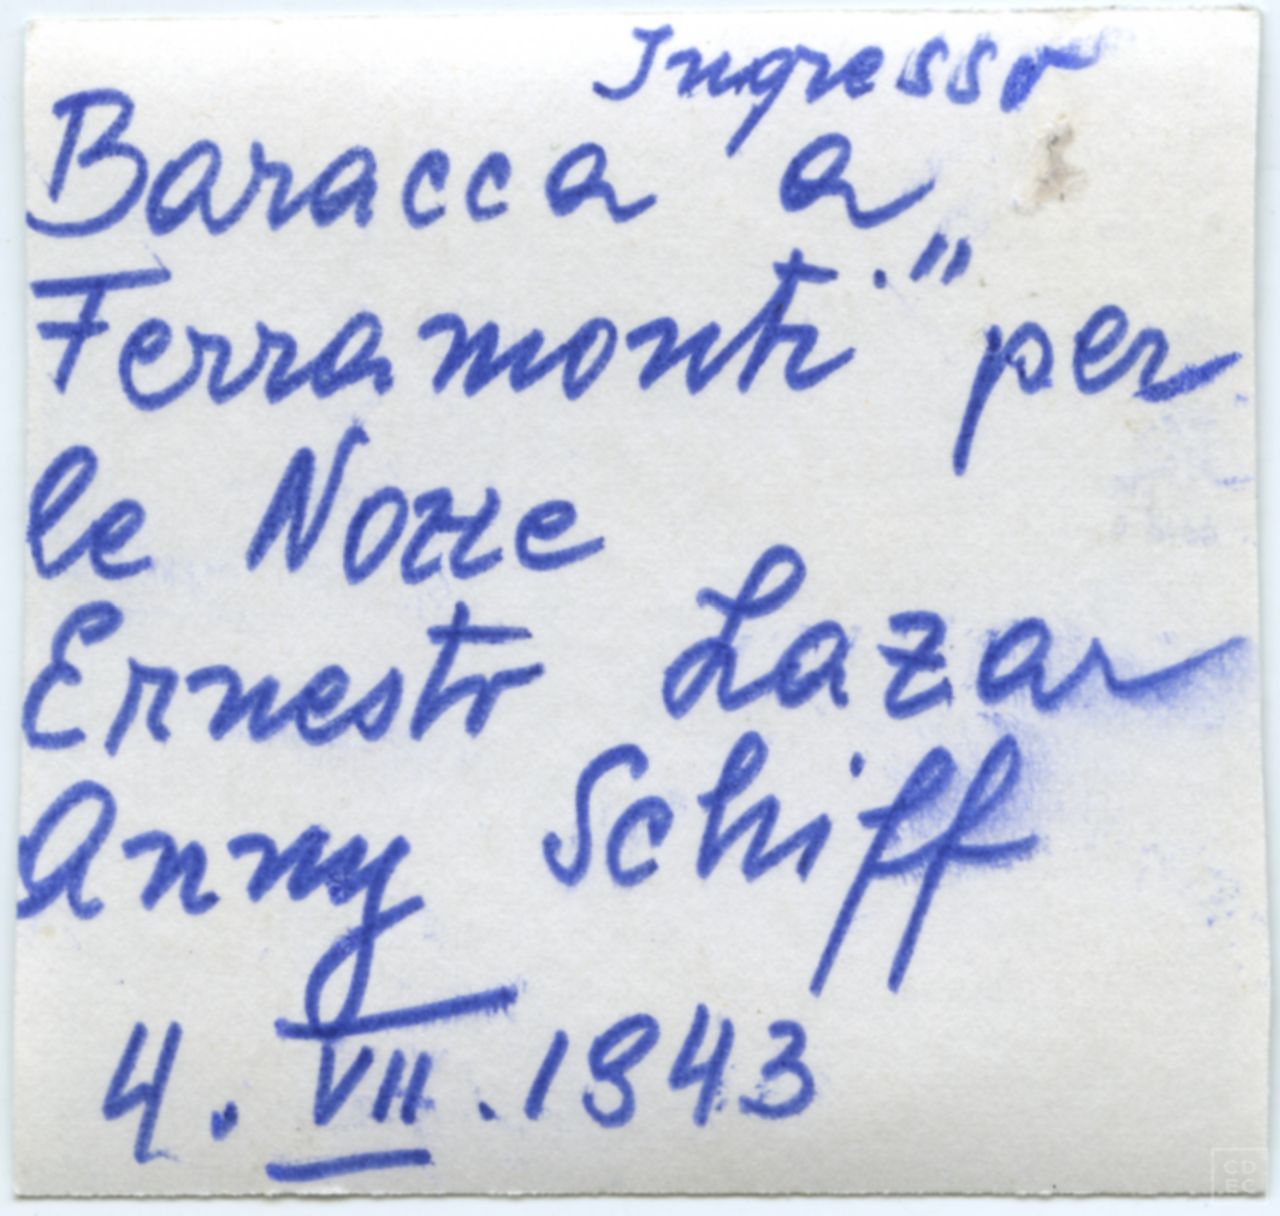 Ingresso
Baracca a
Ferramonti." per
le Nozze
Ernesto Lazar
Anny Schiff
4. VII. 1943
CD
EC